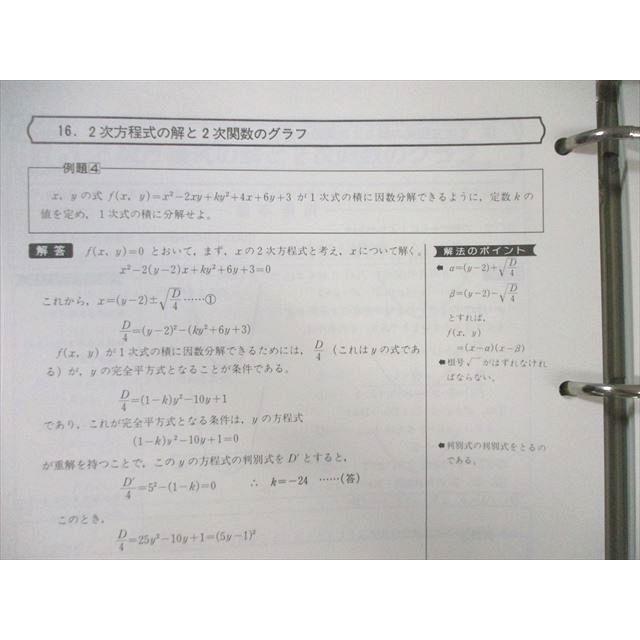 16. 2次方程式の解と2次関数のグラフ
例題4
x, yの式 f(x, y)=x²-2xy+ky²+4x+6y+3 が1次式の積に因数分解できるように, 定数kの
値を定め, 1次式の積に分解せよ。
解答 f(x, y)=0 とおいて, まず, xの2次方程式と考え, xについて解く。
x²-2(y-2)x+ky²+6y+3=0
これから, x=(y-2)±√(D/4) ……①
D/4=(y-2)²-(ky²+6y+3)
f(x, y) が1次式の積に因数分解できるためには, D/4 (これはyの式であ
る)が, yの完全平方式となることが条件である。
D/4=(1-k)y²-10y+1
であり, これが完全平方式となる条件は, yの方程式
(1-k)y²-10y+1=0
が重解を持つことで, このyの方程式の判別式をD′とすると,
D′/4=5²-(1-k)=0 ∴ k=-24 ……(答)
このとき,
D/4=25y²-10y+1=(5y-1)²
解法のポイント
α=(y-2)+√(D/4)
β=(y-2)-√(D/4)
とすれば,
f(x, y)
=(x-α)(x-β)
根号√ がはずれなけれ
ばならない。
判別式の判別式をとるの
である。